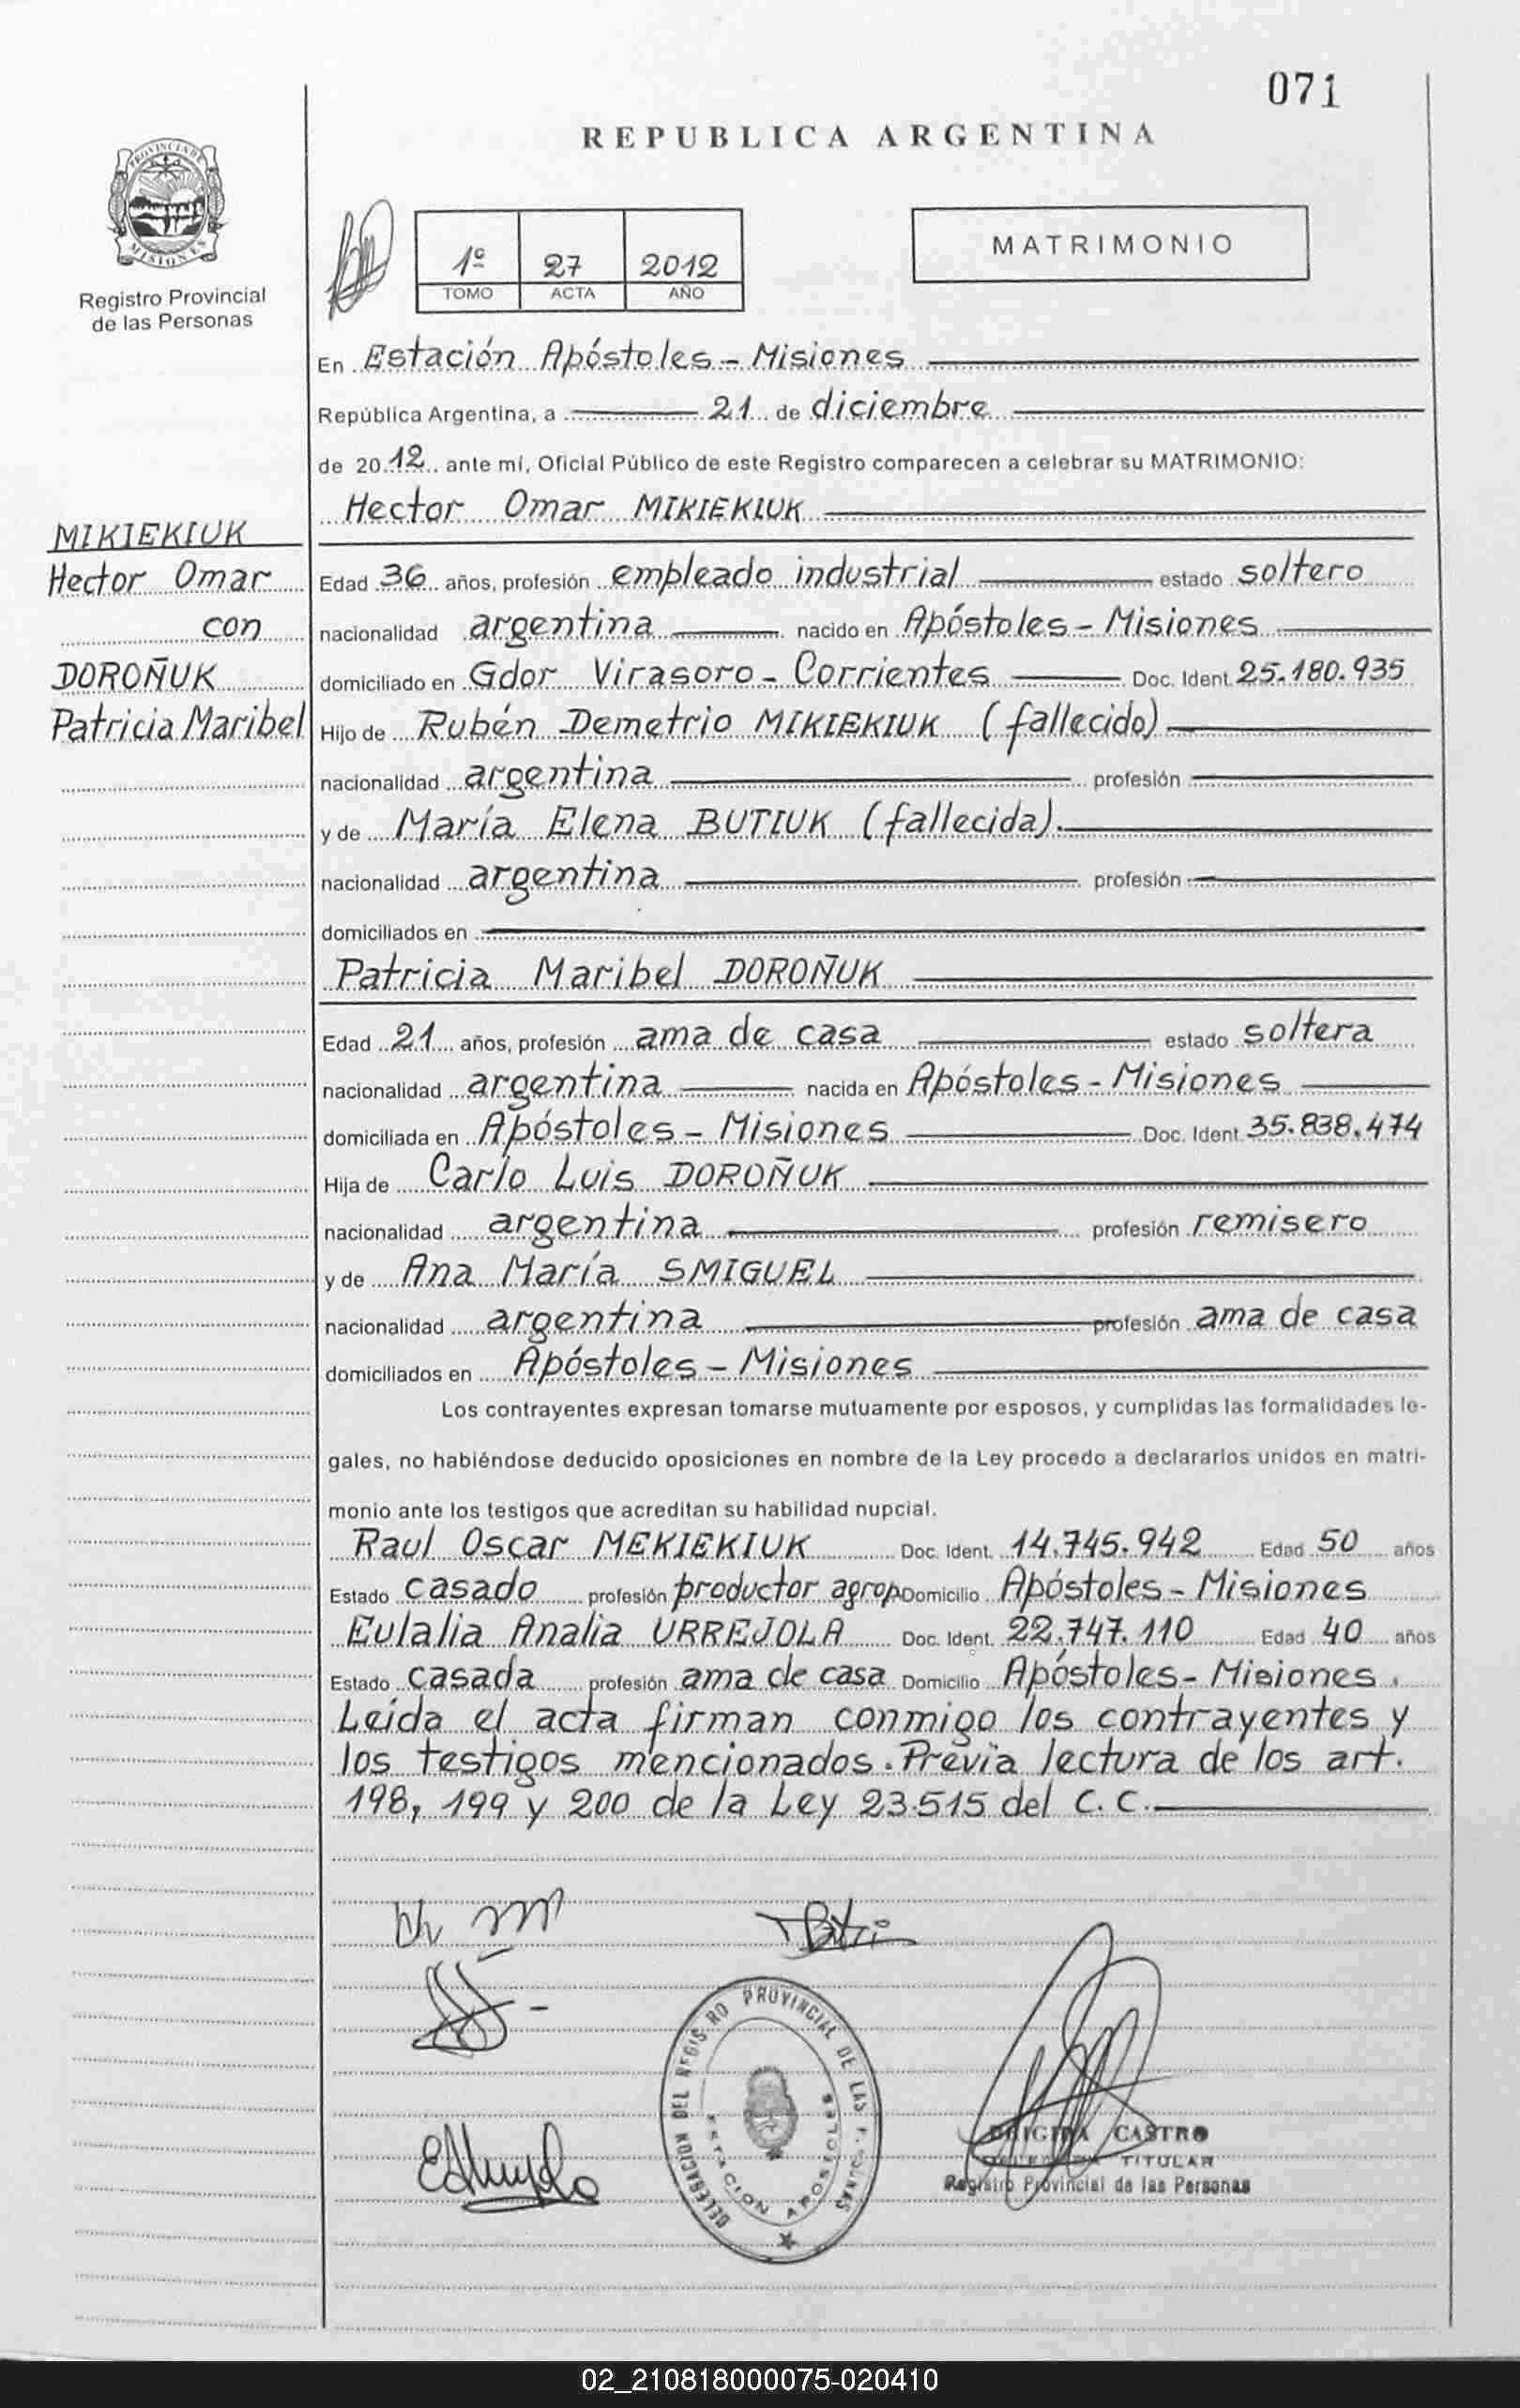 071
REPUBLICA ARGENTINA
PROVINCIA DE
MISIONES
Registro Provincial
de las Personas
1º 27 2012
TOMO ACTA AÑO
MATRIMONIO
En Estación Apóstoles - Misiones
República Argentina, a 21 de diciembre
de 2012 ante mí, Oficial Público de este Registro comparecen a celebrar su MATRIMONIO:
Hector Omar MIKIEKIUK
MIKIEKIUK
Hector Omar
con
DOROÑUK
Patricia Maribel
Edad 36 años, profesión empleado industrial estado soltero
nacionalidad argentina nacido en Apóstoles - Misiones
domiciliado en Gdor Virasoro - Corrientes Doc. Ident. 25.180.935
Hijo de Rubén Demetrio MIKIEKIUK (fallecido)
nacionalidad argentina profesión
y de María Elena BUTIUK (fallecida).
nacionalidad argentina profesión
domiciliados en
Patricia Maribel DOROÑUK
Edad 21 años, profesión ama de casa estado soltera
nacionalidad argentina nacida en Apóstoles - Misiones
domiciliada en Apóstoles - Misiones Doc. Ident. 35.838.474
Hija de Carlo Luis DOROÑUK
nacionalidad argentina profesión remisero
y de Ana María SMIGUEL
nacionalidad argentina profesión ama de casa
domiciliados en Apóstoles - Misiones
Los contrayentes expresan tomarse mutuamente por esposos, y cumplidas las formalidades le-
gales, no habiéndose deducido oposiciones en nombre de la Ley procedo a declararlos unidos en matri-
monio ante los testigos que acreditan su habilidad nupcial.
Raul Oscar MEKIEKIUK Doc. Ident. 14.745.942 Edad 50 años
Estado casado profesión productor agrop Domicilio Apóstoles - Misiones
Eulalia Analia URREJOLA Doc. Ident. 22.747.110 Edad 40 años
Estado casada profesión ama de casa Domicilio Apóstoles - Misiones.
Leída el acta firman conmigo los contrayentes y
los testigos mencionados. Previa lectura de los art.
198, 199 y 200 de la Ley 23.515 del C. C.
DELEGACION DEL REGISTRO PROVINCIAL DE LAS PERSONAS
ESTACION APOSTOLES
BRIGIDA CASTRO
TITULAR
Registro Provincial de las Personas
02_210818000075-020410